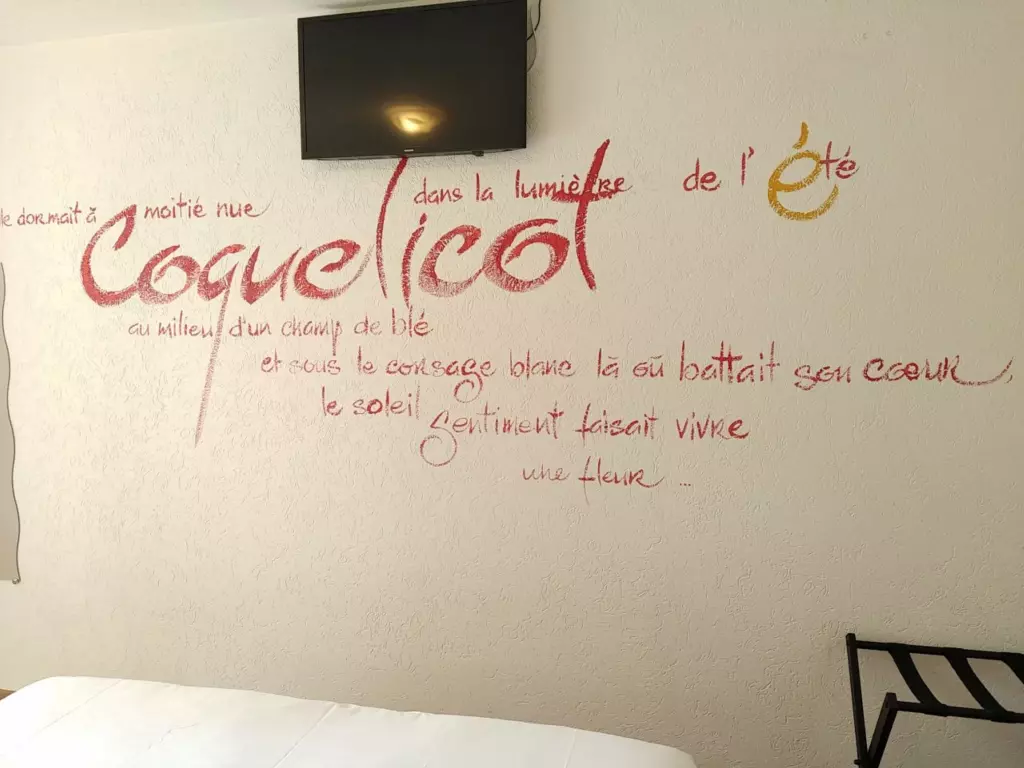 le dormait à moitié nue dans la lumière de l'été
Coquelicot
au milieu d'un champ de blé
et sous le corsage blanc là où battait son cœur,
le soleil Gentiment faisait vivre
une fleur ...